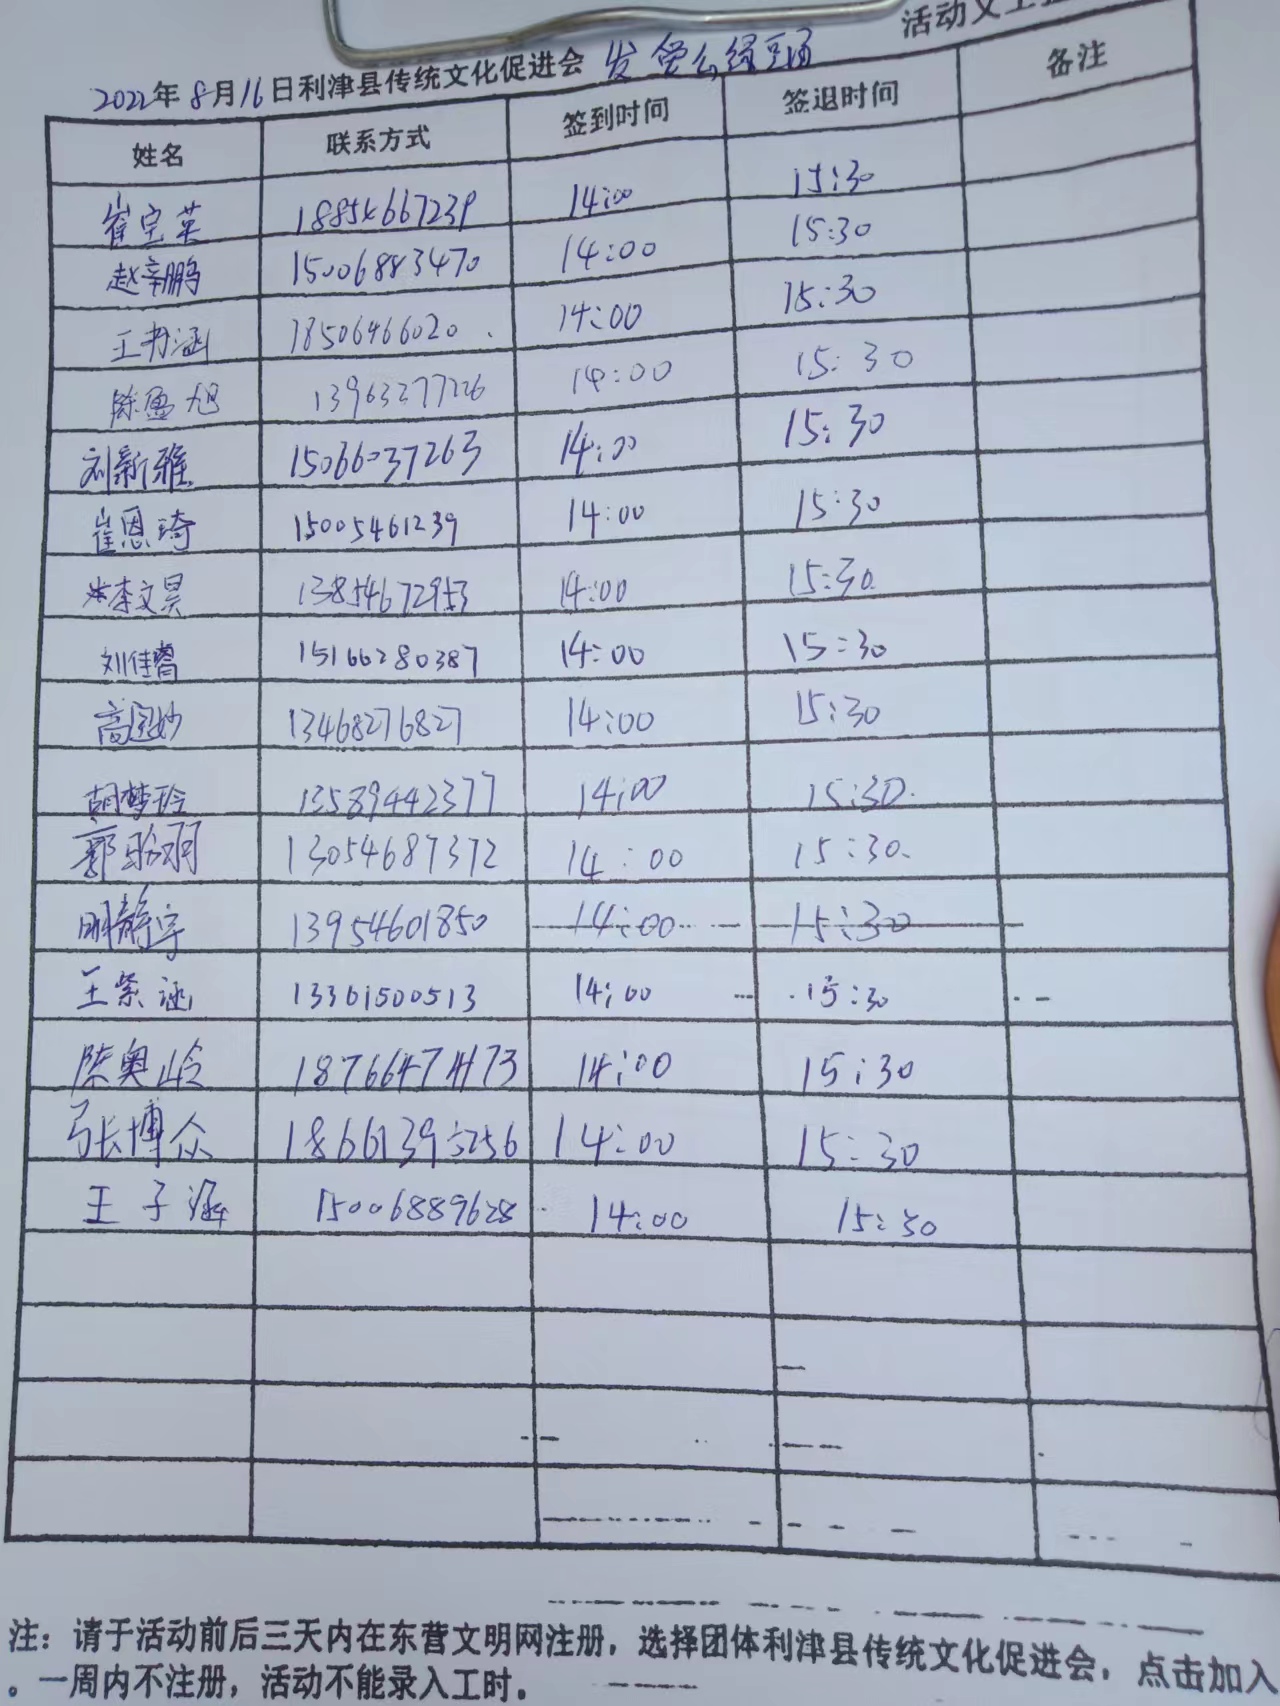 活动义工
2022年8月16日利津县传统文化促进会 发爱心绿豆汤
姓名 联系方式 签到时间 签退时间 备注
崔宝英 18854667239 14:00 15:30
赵辛鹏 15006883470 14:00 15:30
王冉涵 18506466020 14:00 15:30
陈盈旭 13963277226 14:00 15:30
刘新雅 15066037263 14:00 15:30
崔恩琦 15005461239 14:00 15:30
李文昊 13854672953 14:00 15:30
刘佳睿 15166280387 14:00 15:30
高图妙 13468276827 14:00 15:30
胡梦玲 13589442377 14:00 15:30
郭 13054687372 14:00 15:30
明静宇 13954601850 14:00 15:30
王紫涵 13361500513 14:00 15:30
陈奥岭 18766474173 14:00 15:30
张博众 18661395256 14:00 15:30
王子涵 15006889628 14:00 15:30
注：请于活动前后三天内在东营文明网注册，选择团体利津县传统文化促进会，点击加入
。一周内不注册，活动不能录入工时。